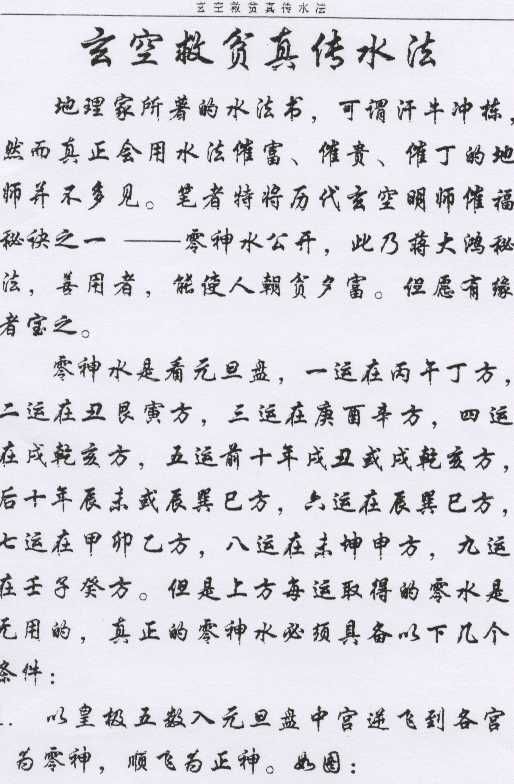 玄空救贫真传水法
玄空救贫真传水法
地理家所著的水法书，可谓汗牛冲栋，
然而真正会用水法催富、催贵、催丁的地
师并不多见。笔者特将历代玄空明师催福
秘诀之一 ——零神水公开，此乃蒋大鸿秘
法，善用者，能使人朝贫夕富。但愿有缘
者宝之。
零神水是看元旦盘，一运在丙午丁方，
二运在丑艮寅方，三运在庚酉辛方，四运
在戌乾亥方，五运前十年戌丑或戌乾亥方，
后十年辰未或辰巽巳方，六运在辰巽巳方，
七运在甲卯乙方，八运在未坤申方，九运
在壬子癸方。但是上方每运取得的零水是
无用的，真正的零神水必须具备以下几个
条件：
. 以皇极五数入元旦盘中宫逆飞到各宫
为零神，顺飞为正神。如图：